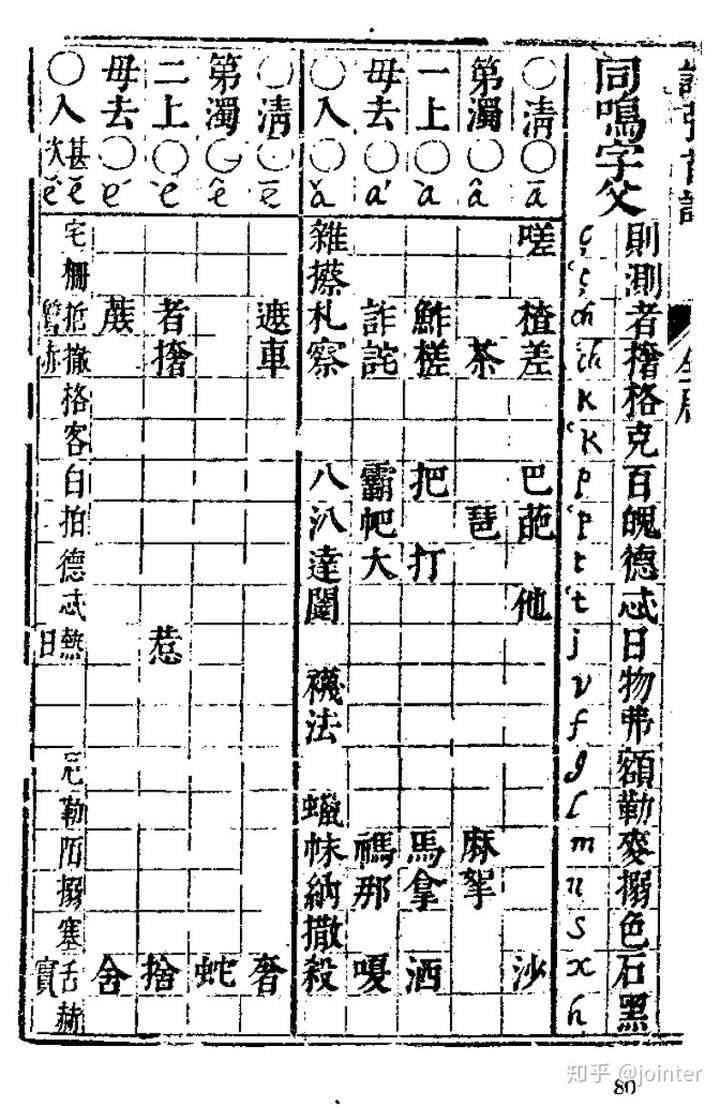 同鳴字父
則測者撦格克百魄德忒日物弗額勒麥搦色石黑
ç ‘ç ch ‘ch K ‘K p ‘p t ‘t j v f g l m n s x h
○清○ā 嗟楂差巴葩他沙
第濁○â 茶琶麻拏
一上○à 鮓槎把打馬拿洒
毋去○á 詐詫霸帊大禡那嗄
○入○ǎ 雜攃札察八汃達闥襪法蠟帓納撒殺
○清○ē 遮車奢
第濁○ê 蛇
二上○è 者撦惹捨
毋去○é 蔗舍
○入甚ě 宅柵撤格客白拍德忒熱勒陌搦塞舌赫
次ě 日實
知乎 @jointer
80